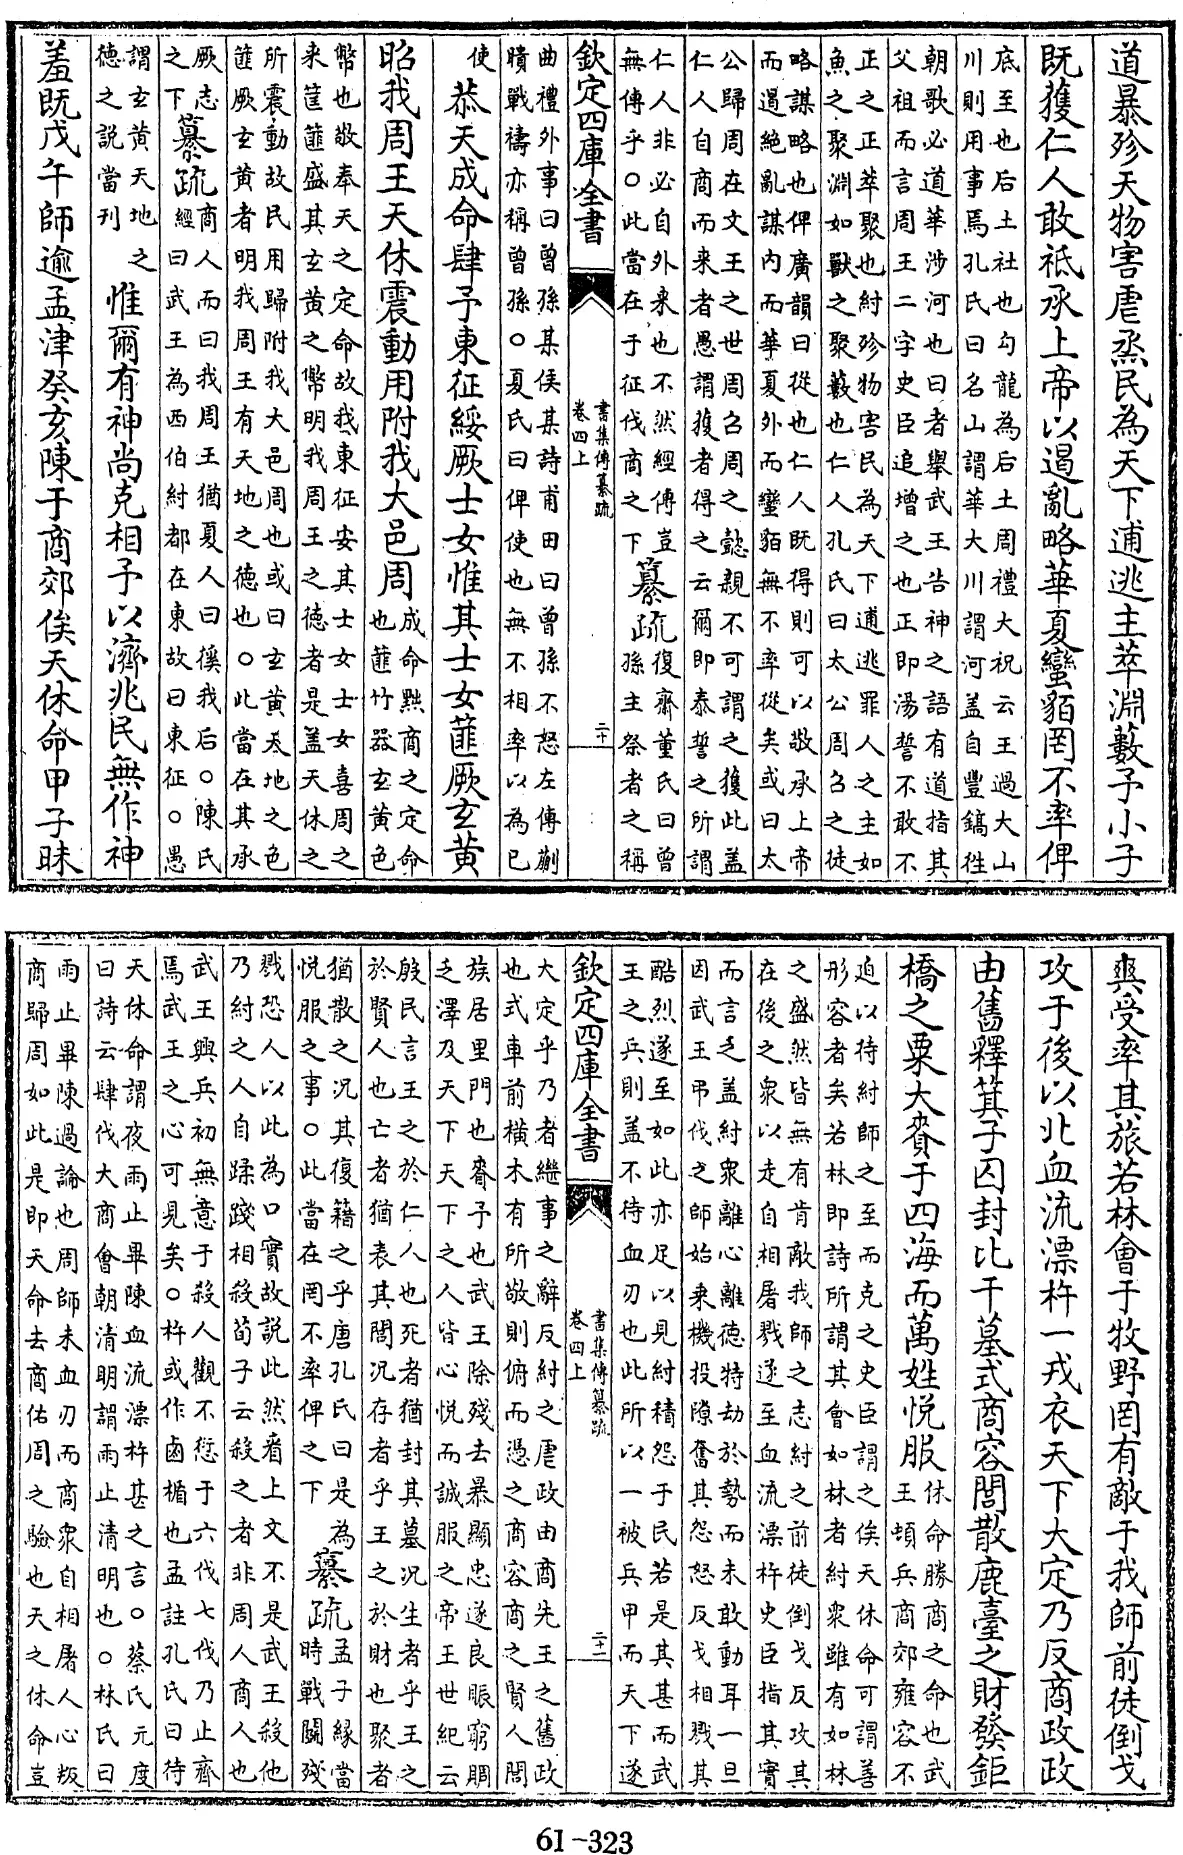 道暴殄天物害虐烝民為天下逋逃主萃淵藪予小子
既獲仁人敢祗承上帝以遏亂略華夏蠻貊罔不率俾
底至也后土社也勾龍為后土周禮大祝云王過大山
川則用事焉孔氏曰名山謂華大川謂河蓋自豐鎬徃
朝歌必道華渉河也曰者舉武王告神之語有道指其
父祖而言周王二字史臣追增之也正即湯誓不敢不
正之正萃聚也紂殄物害民為天下逋逃罪人之主如
魚之聚淵如獸之聚藪也仁人孔氏曰太公周召之徒
略謀略也俾廣韻曰從也仁人既得則可以敬承上帝
而遏絶亂謀内而華夏外而蠻貊無不率從矣或曰太
公歸周在文王之世周召周之懿親不可謂之獲此蓋
仁人自商而来者愚謂獲者得之云爾即泰誓之所謂
仁人非必自外来也不然經傳豈
無傳乎○此當在于征伐商之下
纂疏
復齋董氏曰曾
孫主祭者之稱
欽定四庫全書
書集傳纂疏
卷四上
二十
曲禮外事曰曾孫某侯某詩甫田曰曾孫不怒左傳蒯
聵戰禱亦稱曾孫○夏氏曰俾使也無不相率以為已
使
恭天成命肆予東征綏厥士女惟其士女篚厥玄黄
昭我周王天休震動用附我大邑周
成命黜商之定命
也篚竹器玄黄色
幣也敬奉天之定命故我東征安其士女士女喜周之
来筐篚盛其玄黄之幣明我周王之徳者是蓋天休之
所震動故民用歸附我大邑周也或曰玄黄天地之色
篚厥玄黄者明我周王有天地之徳也○此當在其承
厥志
之下
纂疏
商人而曰我周王猶夏人曰徯我后○陳氏
經曰武王為西伯紂都在東故曰東征○愚
謂玄黄天地之
徳之説當刊
惟爾有神尚克相予以濟兆民無作神
羞既戊午師逾孟津癸亥陳于商郊俟天休命甲子昧
爽受率其旅若林會于牧野罔有敵于我師前徒倒戈
攻于後以北血流漂杵一戎衣天下大定乃反商政政
由舊釋箕子囚封比干墓式商容閭散鹿臺之財發鉅
橋之粟大賚于四海而萬姓悦服
休命勝商之命也武
王頓兵商郊雍容不
迫以待紂師之至而克之史臣謂之俟天休命可謂善
形容者矣若林即詩所謂其會如林者紂衆雖有如林
之盛然皆無有肯敵我師之志紂之前徒倒戈反攻其
在後之衆以走自相屠戮遂至血流漂杵史臣指其實
而言之蓋紂衆離心離徳特劫於勢而未敢動耳一旦
因武王弔伐之師始乗機投隙奮其怨怒反戈相戮其
酷烈遂至如此亦足以見紂積怨于民若是其甚而武
王之兵則蓋不待血刃也此所以一被兵甲而天下遂
欽定四庫全書
書集傳纂疏
卷四上
二十一
大定乎乃者繼事之辭反紂之虐政由商先王之舊政
也式車前横木有所敬則俯而憑之商容商之賢人閭
族居里門也賚予也武王除殘去暴顯忠遂良賑窮賙
乏澤及天下天下之人皆心悦而誠服之帝王世紀云
殷民言王之於仁人也死者猶封其墓况生者乎王之
於賢人也亡者猶表其閭况存者乎王之於財也聚者
猶散之况其復籍之乎唐孔氏曰是為
悦服之事○此當在罔不率俾之下
纂疏
孟子縁當
時戰鬬殘
戮恐人以此為口實故説此然看上文不是武王殺他
乃紂之人自蹂踐相殺荀子云殺之者非周人商人也
武王興兵初無意于殺人觀不愆于六伐七伐乃止齊
焉武王之心可見矣○杵或作鹵楯也孟註孔氏曰待
天休命謂夜雨止畢陳血流漂杵甚之言○蔡氏元度
曰詩云肆伐大商會朝清明謂雨止清明也○林氏曰
雨止畢陳過論也周師未血刃而商衆自相屠人心叛
商歸周如此是即天命去商佑周之驗也天之休命豈
61-323